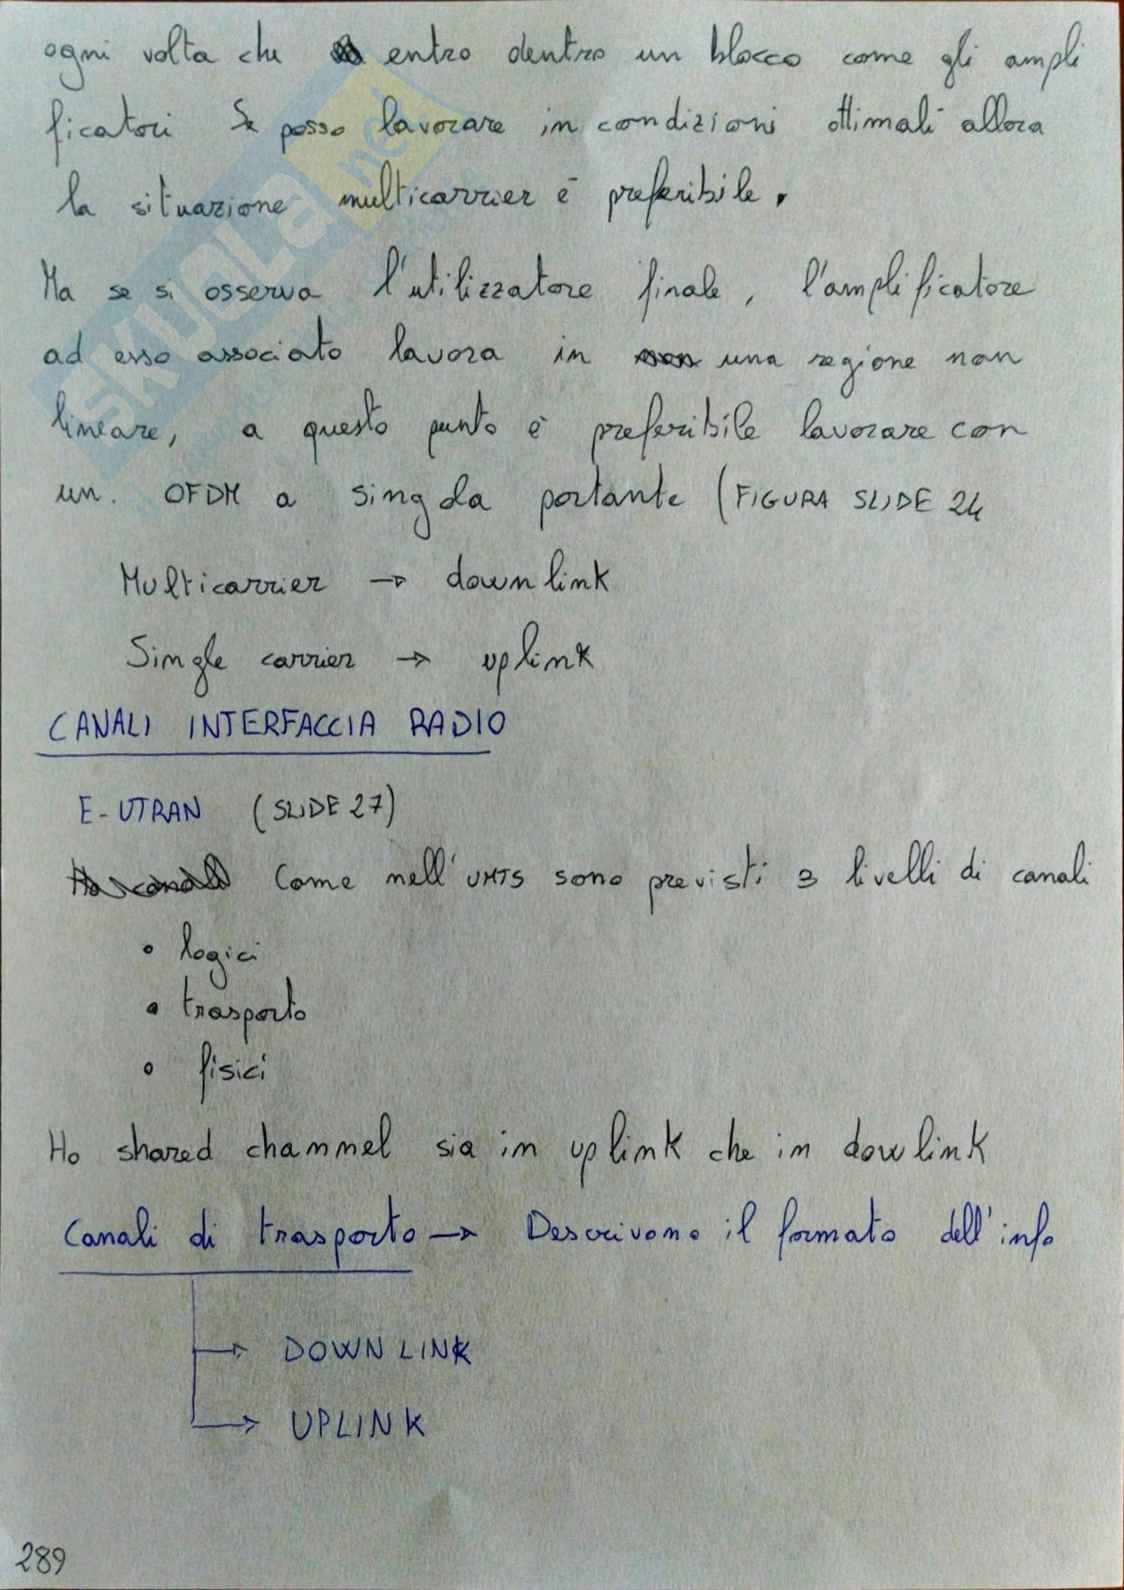 ogni volta che entro dentro un blocco come gli ampli
ficatori Se posso lavorare in condizioni ottimali allora
la situazione multicarrier è preferibile.
Ma se si osserva l'utilizzatore finale, l'amplificatore
ad esso associato lavora in una regione non
lineare, a questo punto è preferibile lavorare con
un. OFDM a singola portante (FIGURA SLIDE 24
Multicarrier → downlink
Single carrier → uplink
CANALI INTERFACCIA RADIO
E-UTRAN (SLIDE 27)
Come nell'UMTS sono previsti 3 livelli di canali
• logici
• trasporto
• fisici
Ho shared channel sia in uplink che in dowlink
Canali di trasporto → Descrivono il formato dell'info
→ DOWNLINK
→ UPLINK
289
SKUOLA.net